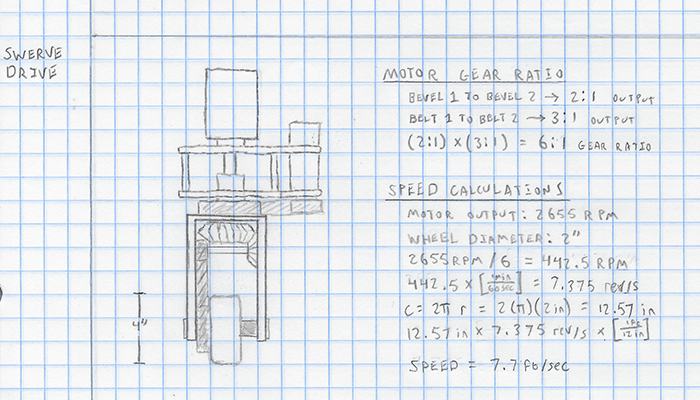 SWERVE
DRIVE
4"
MOTOR GEAR RATIO
BEVEL 1 TO BEVEL 2 → 2:1 OUTPUT
BELT 1 TO BELT 2 → 3:1 OUTPUT
(2:1) × (3:1) = 6:1 GEAR RATIO
SPEED CALCULATIONS
MOTOR OUTPUT: 2655 RPM
WHEEL DIAMETER: 2"
2655 RPM / 6 = 442.5 RPM
442.5 × [1min/60sec] = 7.375 rev/s
C = 2π r = 2(π)(2in) = 12.57 in
12.57 in × 7.375 rev/s × [1ft/12in]
SPEED = 7.7 ft/sec